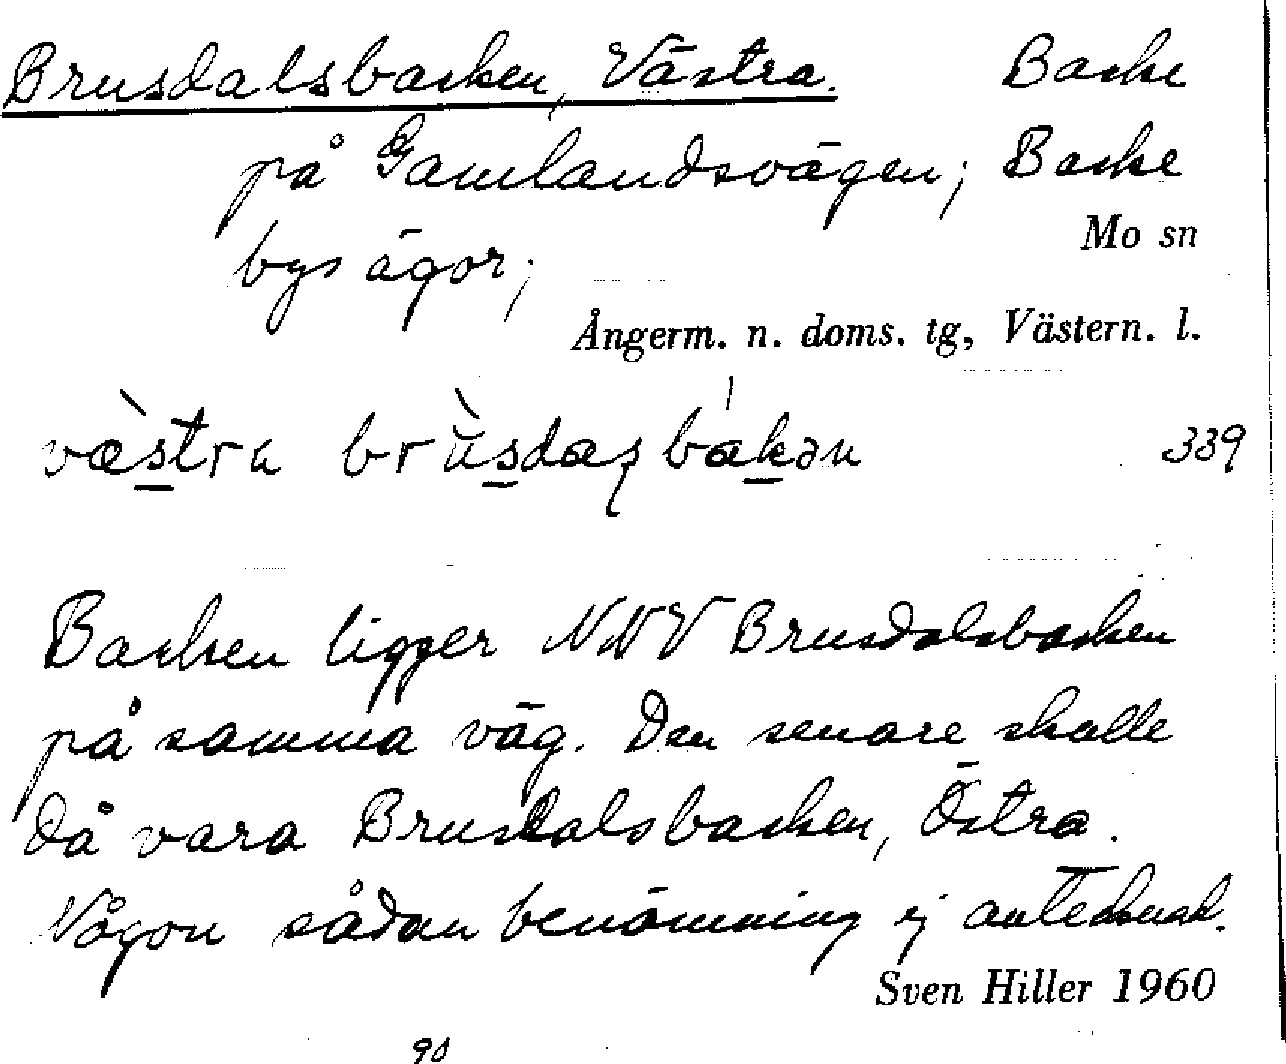 Brusdalsbacken, Västra. Backe
på Gamlandsvägen; Backe
bys ägor; Mo sn
Ångerm. n. doms. tg, Västern. l.
væ̀stra brùsdaʂbákən 339
Backen ligger NNV Brusdalsbacken
på samma väg. Den senare skulle
då vara Brusdalsbacken, Östra.
Någon sådan benämning ej antecknad.
Sven Hiller 1960
90